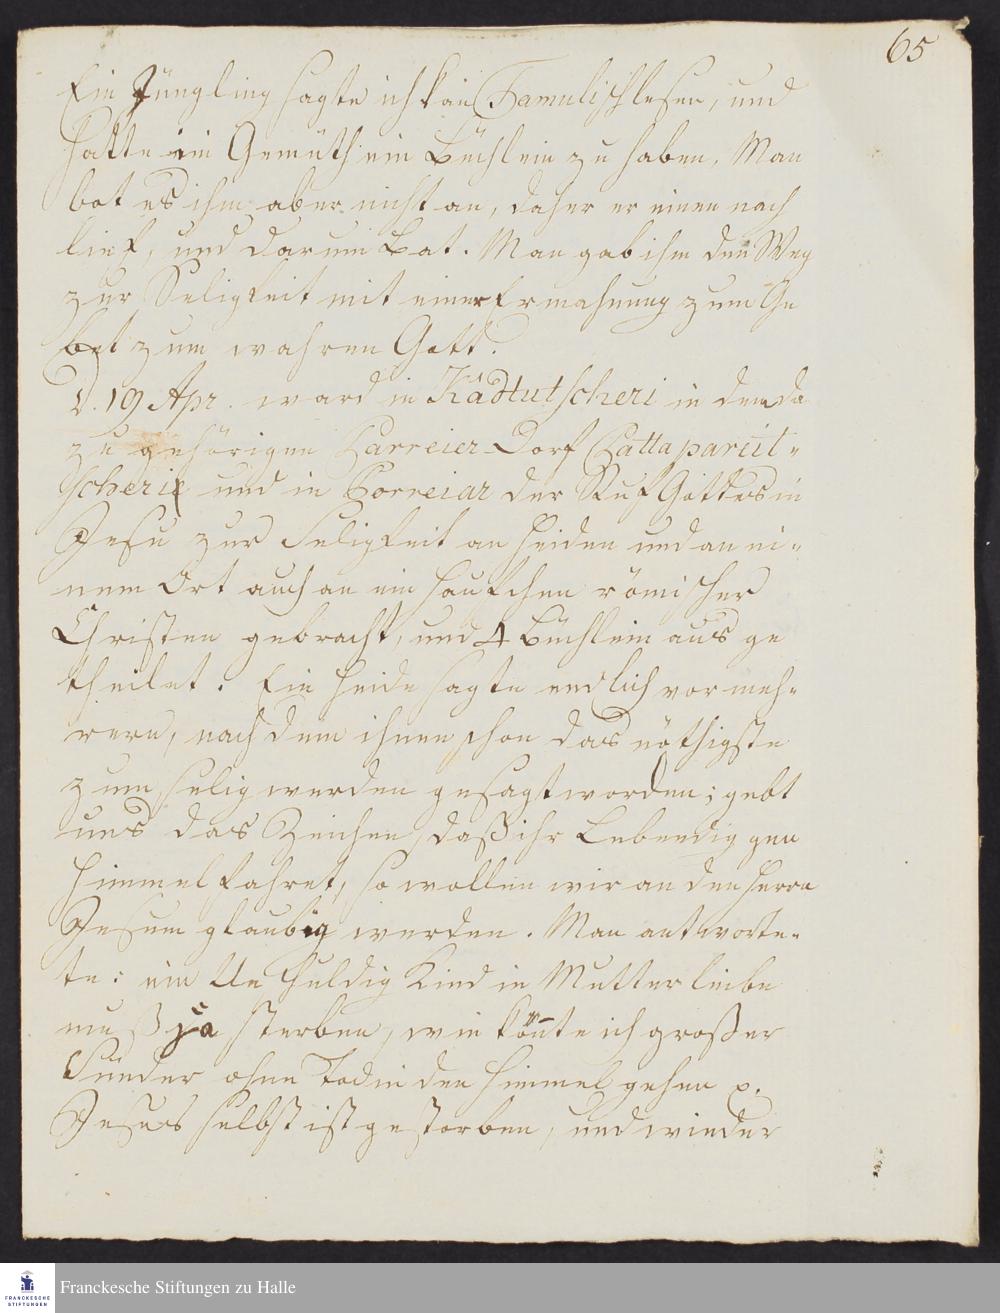 65
Ein Jüngling sagte ich kan Tamulisch lesen, und
hatte ein Gemüth ein Büchlein zu haben. Man
bot es ihm aber nicht an, daher er einem nach
lief, und darum Bat. Man gab ihm den Weg
zur Seligkeit mit einer Ermahnung zum Ge
bet zum wahren Gott.
D. 19 Apr. ward in Kádtutscheri in dem da
zu gehörigen Parreier-Dorf Pattapareit-
scherie und in Porreiar der Ruf Gottes in
Jesu zur Seligkeit an Heiden und an ei-
nem Ort auch an ein Häufchen römischer
Christen gebracht, und 4 Büchlein aus ge
theilet. Ein Heide sagte endlich vor meh-
rern, nach dem ihnen schon das nöthigste
zum selig werden gesagt worden; gebt
uns das Zeichen, daß ihr Lebendig gen
Himmel fahret, so wollen wir an den Herrn
Jesum glaubig werden. Man antworte-
te: ein Unschuldig Kind in Mutterleibe
muß ja sterben, wie könnte ich großer
Sünder ohne Tod in den Himmel gehen p.
Jesus selbst ist gestorben, und wieder
FRANCKESCHE
STIFTUNGEN
Franckesche Stiftungen zu Halle